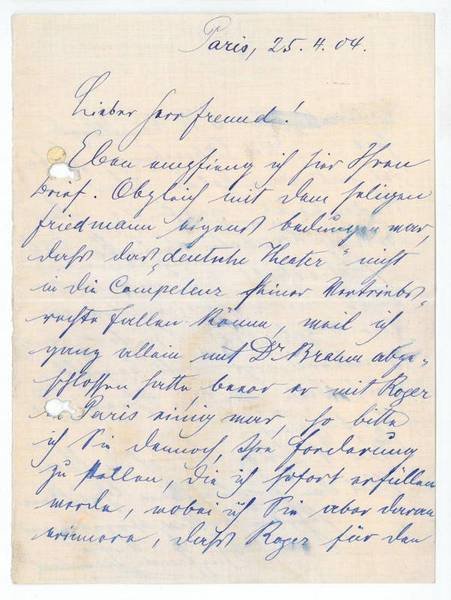 Paris, 25.4.04.
Lieber Herr Freund!
Eben empfieng ich hier Ihren
Brief. Obgleich mit dem seligen
Friedmann eigens bedungen war,
dass das „deutsche Theater“ nicht
in die Competenz seiner Vertriebs-
rechte fallen könne, weil ich
ganz allein mit Dr. Brahm abge-
schlossen hatte bevor er mit Roger
in Paris einig war, so bitte
ich Sie dennoch, Ihre Forderung
zu stellen, die ich sofort erfüllen
werde, wobei ich Sie aber daran
erinnere, dass Roger für den